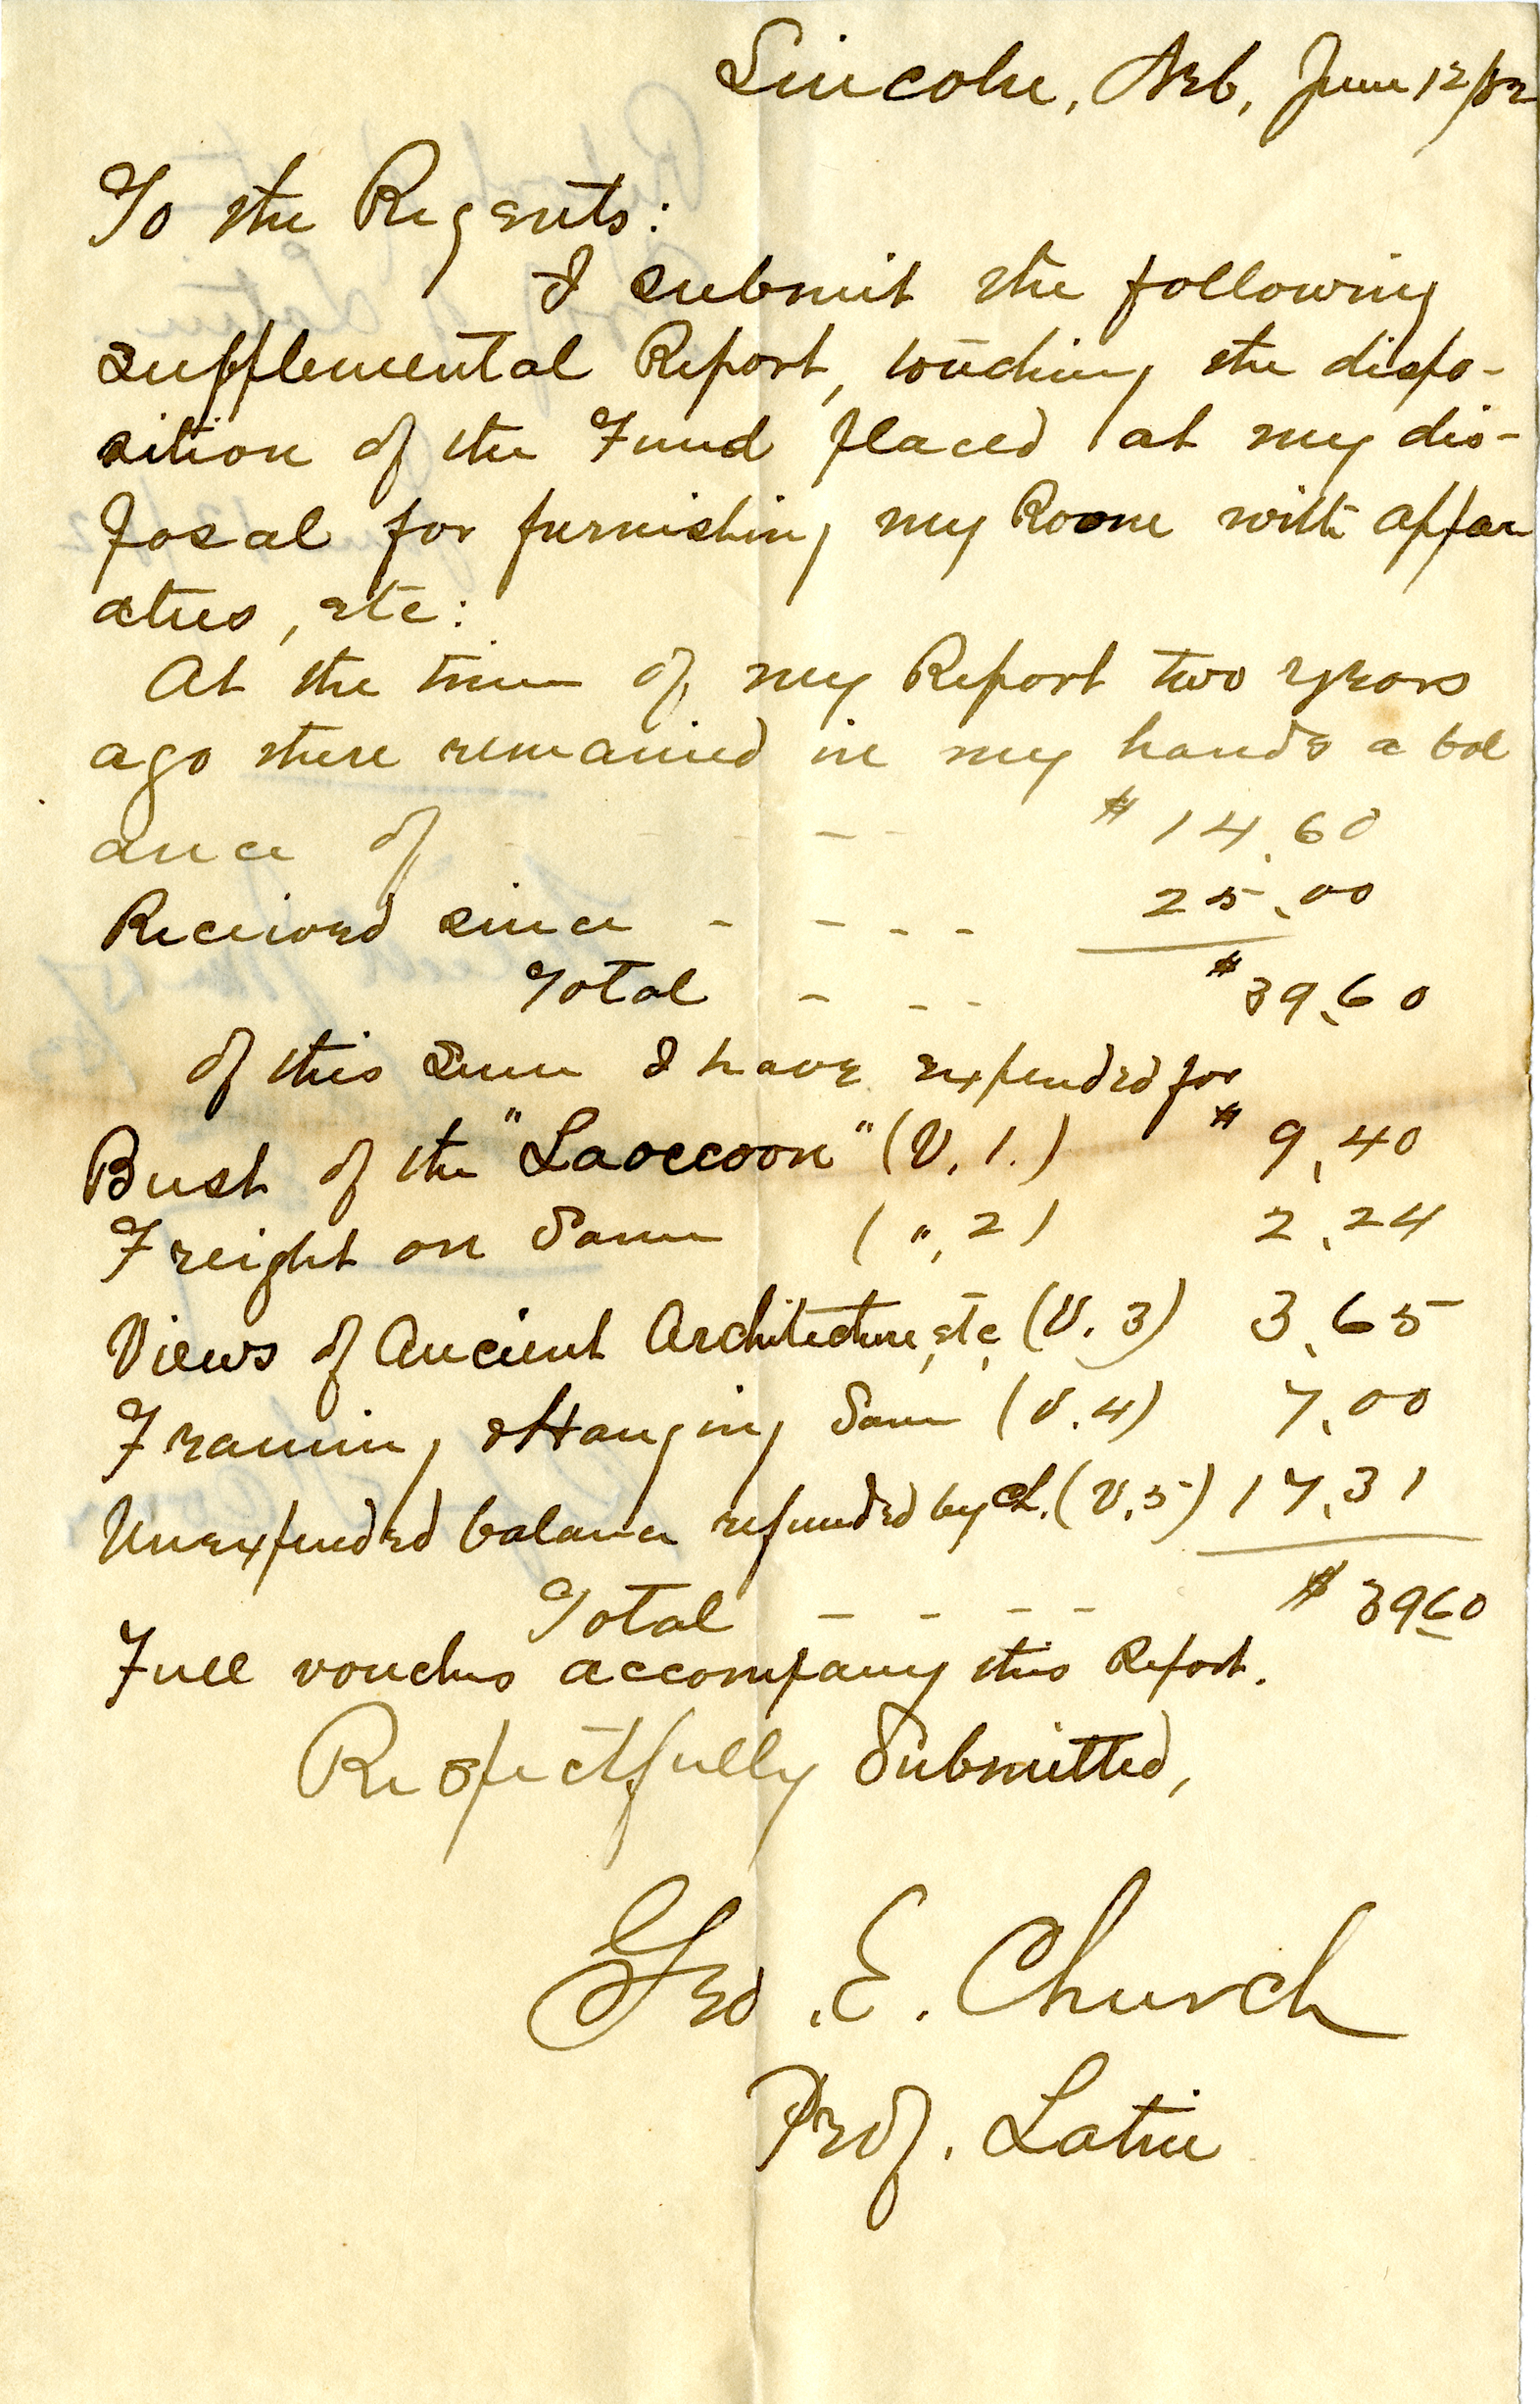 Lincoln, Neb, June 12/82
To the Regents:
I submit the following
supplemental Report, touching the dispo-
sition of the Fund placed at my dis-
posal for furnishing my Room with appar
atus, etc:
At the time of my Report two years
ago there remained in my hands a bal
ance of - - - - $14.60
Received since - - - - 25.00
Total - - - $39.60
of this sum I have expended for
Bust of the "Laoccoon" (V. 1.) $9.40
Freight on Same (", 2) 2.24
Views of Ancient Architecture, etc, (V. 3) 3.65
Framing & Hanging Same (V. 4) 7.00
Unexpended balance refunded by ch. (V. 5) 17.31
Total - - - - $39.60
Full vouchers accompany this Report.
Respectfully Submitted,
Geo. E. Church
Prof. Latin